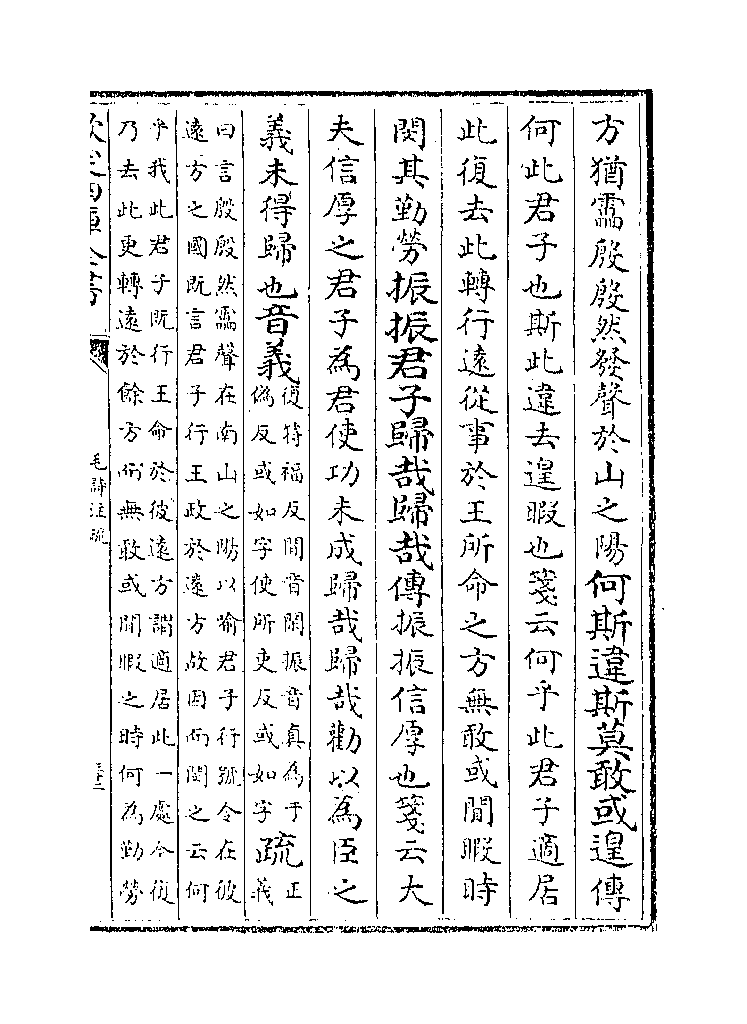 方猶靁殷殷然發聲於山之陽何斯違斯莫敢或遑傳
何此君子也斯此違去遑暇也箋云何乎此君子適居
此復去此轉行遠從事於王所命之方無敢或閒暇時
閔其勤勞振振君子歸哉歸哉傳振振信厚也箋云大
夫信厚之君子為君使功未成歸哉歸哉勸以為臣之
義未得歸也音義
復符福反閒音閑振音真為于
偽反或如字使所吏反或如字
疏
正
義
曰言殷殷然靁聲在南山之陽以喻君子行號令在彼
遠方之國既言君子行王政於遠方故因而閔之云何
乎我此君子既行王命於彼遠方謂適居此一處今復
乃去此更轉遠於餘方而無敢或閒暇之時何為勤勞
欽定四庫全書
毛詩注疏